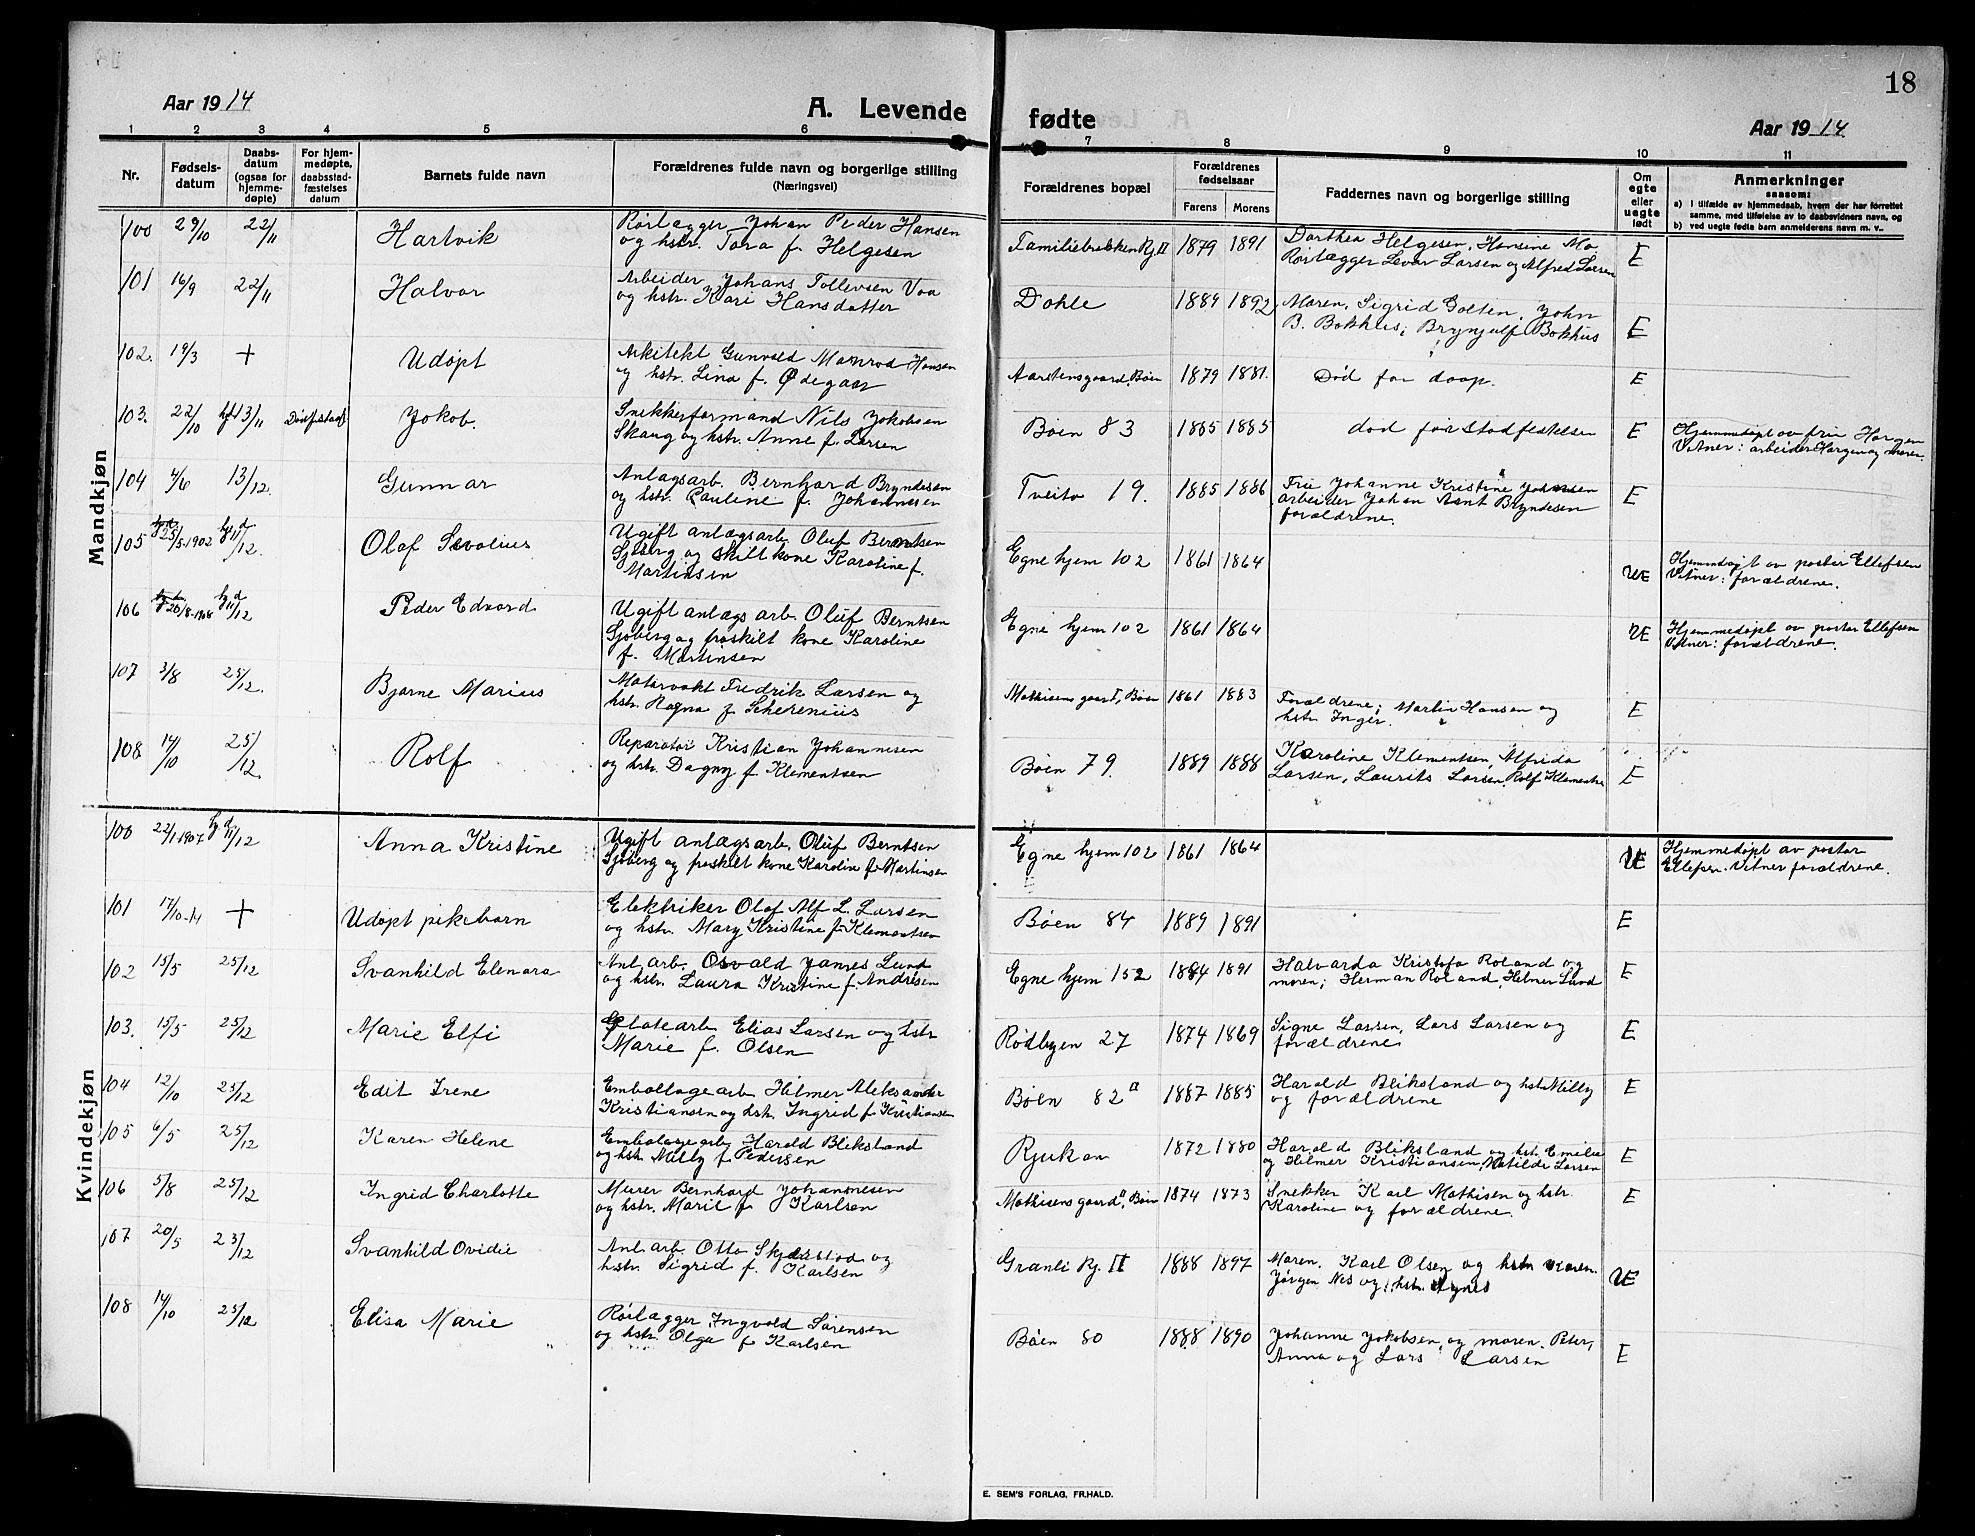 18
Aar 1914
A. Levende fødte
Aar 1914
1 2 3 4 5 6 7 8 9 10 11
Nr.
Fødsels-
datum
Daabs-
datum
(ogsaa for
hjemme-
døpte)
For hjem-
medøpte,
daabsstad-
fæstelses
datum
Barnets fulde navn
Forældrenes fulde navn og borgerlige stilling
(Næringsvei)
Forældrenes bopæl
Forældrenes
fødselsaar
Farens Morens
Faddernes navn og borgerlige stilling
Om
egte
eller
uegte
født
Anmerkninger
saasom:
a) i tilfælde av hjemmedaab, hvem der har forrettet
samme, med tilføielse av to daabsvidners navn, og
b) ved uegte fødte barn anmelderens navn m. v..
Mandkjøn
100 29/10 22/11 Hartvik
Rørlægger Johan Peder Hansen
og hstr. Tora f. Helgesen
Familiebrakken Rj. II 1879 1891
Dorthea Helgesen, Hansine Mo
Rørlægger Levor Larsen og Alfred Larsen
E
101 16/9 22/11 Halvor
Arbeider Johans Tollevsen Vaa
og hstr. Kari Hansdatter
Dahle 1889 1892
Moren, Sigrid Golten, John
B. Bokhus, Brynjulf Bokhus
E
102. 19/3 + Udøpt
Arkitekt Gunvald Hansen
og hstr. Lina f. Ødegaar
Aarstensgaard, Bøen 1879 1881.
Død før daap.
E
103. 22/10 13/11 Jokob.
Snekkerformand Nils Jokobsen
Skaug og hstr. Anne f. Larsen
Bøen 83 1885 1885
død før stadfestelsen
E
Hjemmedøpt av fru Horgen
Vitner: arbeider Horgen og moren.
104 4/6 13/12. Gunnar
Anlagsarb. Bernhard Bryndesen
og hstr. Pauline f. Johannesen
Tveito 19. 1885 1886
Fru Johanne Kristine Johansen
arbeider Johan Arnt Bryndesen
forældrene.
E
105 25/5-1902 hjd 11/12. Olaf
Ugift anlægsarb. Oluf Berntsen
Sjøberg og skilt kone Karoline f.
Martinsen
Egne hjem 102 1861 1864
UE
Hjemmdøpt av pastor Ellefsen
Vitner: forældrene.
106 26/8-1908 hjd 11/12 Peder Edvard
Ugift anlægsarb. Oluf Berntsen
Sjøberg og fraskilt kone Karoline
f. Martinsen
Egne hjem 102 1861 1864
UE
Hjemmedøpt av pastor Ellefsen
Vitner: forældrene.
107 3/8 25/12. Bjarne Marius
Motorvakt Fredrik Larsen og
hstr. Ragna f. Scherenius
Mathisensgaard I, Bøen 1861 1883
Forældrene, Martin Hansen og
hstr. Inger.
E
108 14/10 25/12. Rolf
Reparatør Kristian Johannesen
og hstr. Dagny f. Klementsen
Bøen 79. 1889 1888
Karoline Klementsen, Alfrida
Larsen, Laurits Larsen, Rolf Klementsen
E
Kvindekjøn
100 22/1-1907 hjd 11/12 Anna Kristine
Ugift anlægsarb. Oluf Berntsen
Sjøberg og fraskilt kone Karoline f. Martinsen
Egne hjem 102 1861 1864
UE
Hjemmedøpt av pastor
Ellefsen. Vitner forældrene.
101 17/10-14 + Udøpt pikebarn
Elektriker Olaf Alf L. Larsen
og hstr. Mary Kristine f. Klementsen
Bøen 84 1889 1891
E
102 15/5 25/12 Svanhild Elenora
Anl. arb. Osvald James Lund
og hstr. Laura Kristine f. Andresen
Egne hjem 152 1884 1891
Halvarda Kristofa Roland og
moren; Herman Roland, Helmer Lund
E
103. 15/5 25/12 Marie Elfi
arb. Elias Larsen og hstr.
Marie f. Olsen
Rødbyen 27 1874 1869
Signe Larsen, Lars Larsen og
forældrene
E
104 12/10 25/12 Edit Irene
Emballagearb. Hilmer Aleksander
Kristiansen og hstr. Ingrid f. Kristiansen
Bøen 82 a 1887 1885
Harald Bliksland og hstr. Milly
og forældrene
E
105 6/5 25/12 Karen Helene
Embalagearb. Harald Bliksland
og hstr. Milly f. Pedersen
Rjukan 1872 1880
Harald Bliksland og hstr. Emilie
og Hilmer Kristiansen, Matilde Larsen
E
106 5/8 25/12 Ingrid Charlotte
Murer Bernhard Johannesen
og hstr. Marit f. Karlsen
Mathisensgaard II, Bøen 1874 1873
Snekker Karl Mathisen og hstr.
Karoline og forældrene.
E
107 20/5 25/12 Svanhild Ovidie
Anl. arb. Otto Skjerstad og
hstr. Sigrid f. Karlsen
Grønli Rj. II 1888 1897
Moren, Karl Olsen og hstr. Karen.
Jørgen Nes og hstr. Agnes
UE
108 14/10 25/12 Elisa Marie
Rørlægger Ingvald Sørensen
og hstr. Olga f. Karlsen
Bøen 80 1888 1890
Johanne Jokobsen, og moren. Peter,
Anna og Lars Larsen
E
E. SEM'S FORLAG, FR.HALD.